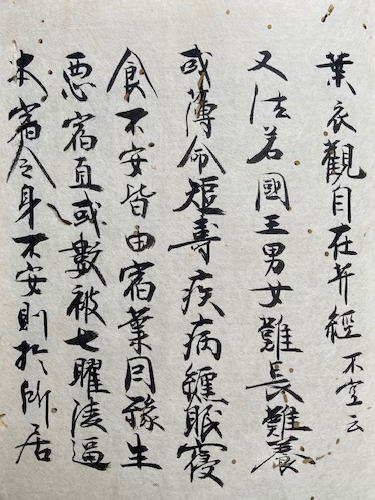 葉衣觀自在𦬇經 不空云
又法若國王男女難長難養
或薄命短壽疾病纏眠寢
食不安皆由宿業因緣生
惡宿直或數被七曜淩逼
本宿令身不安則於所居